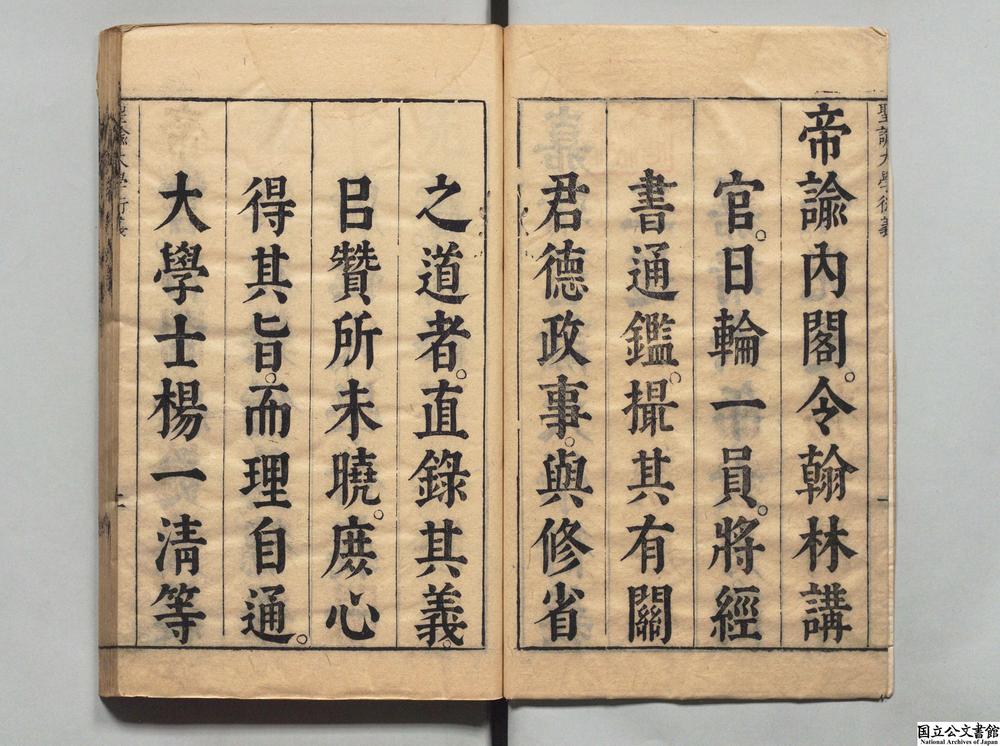 聖諭大學衍義
一
帝諭內閣。令翰林講
官。日輪一員。將經
書通鑑。撮其有關
君德政事。與修省
之道者。直錄其義。
㠯贊所未曉。庶心
得其旨。而理自通。
大學士楊一清等
聖諭大學衍義
國立公文書館
National Archives of Japan